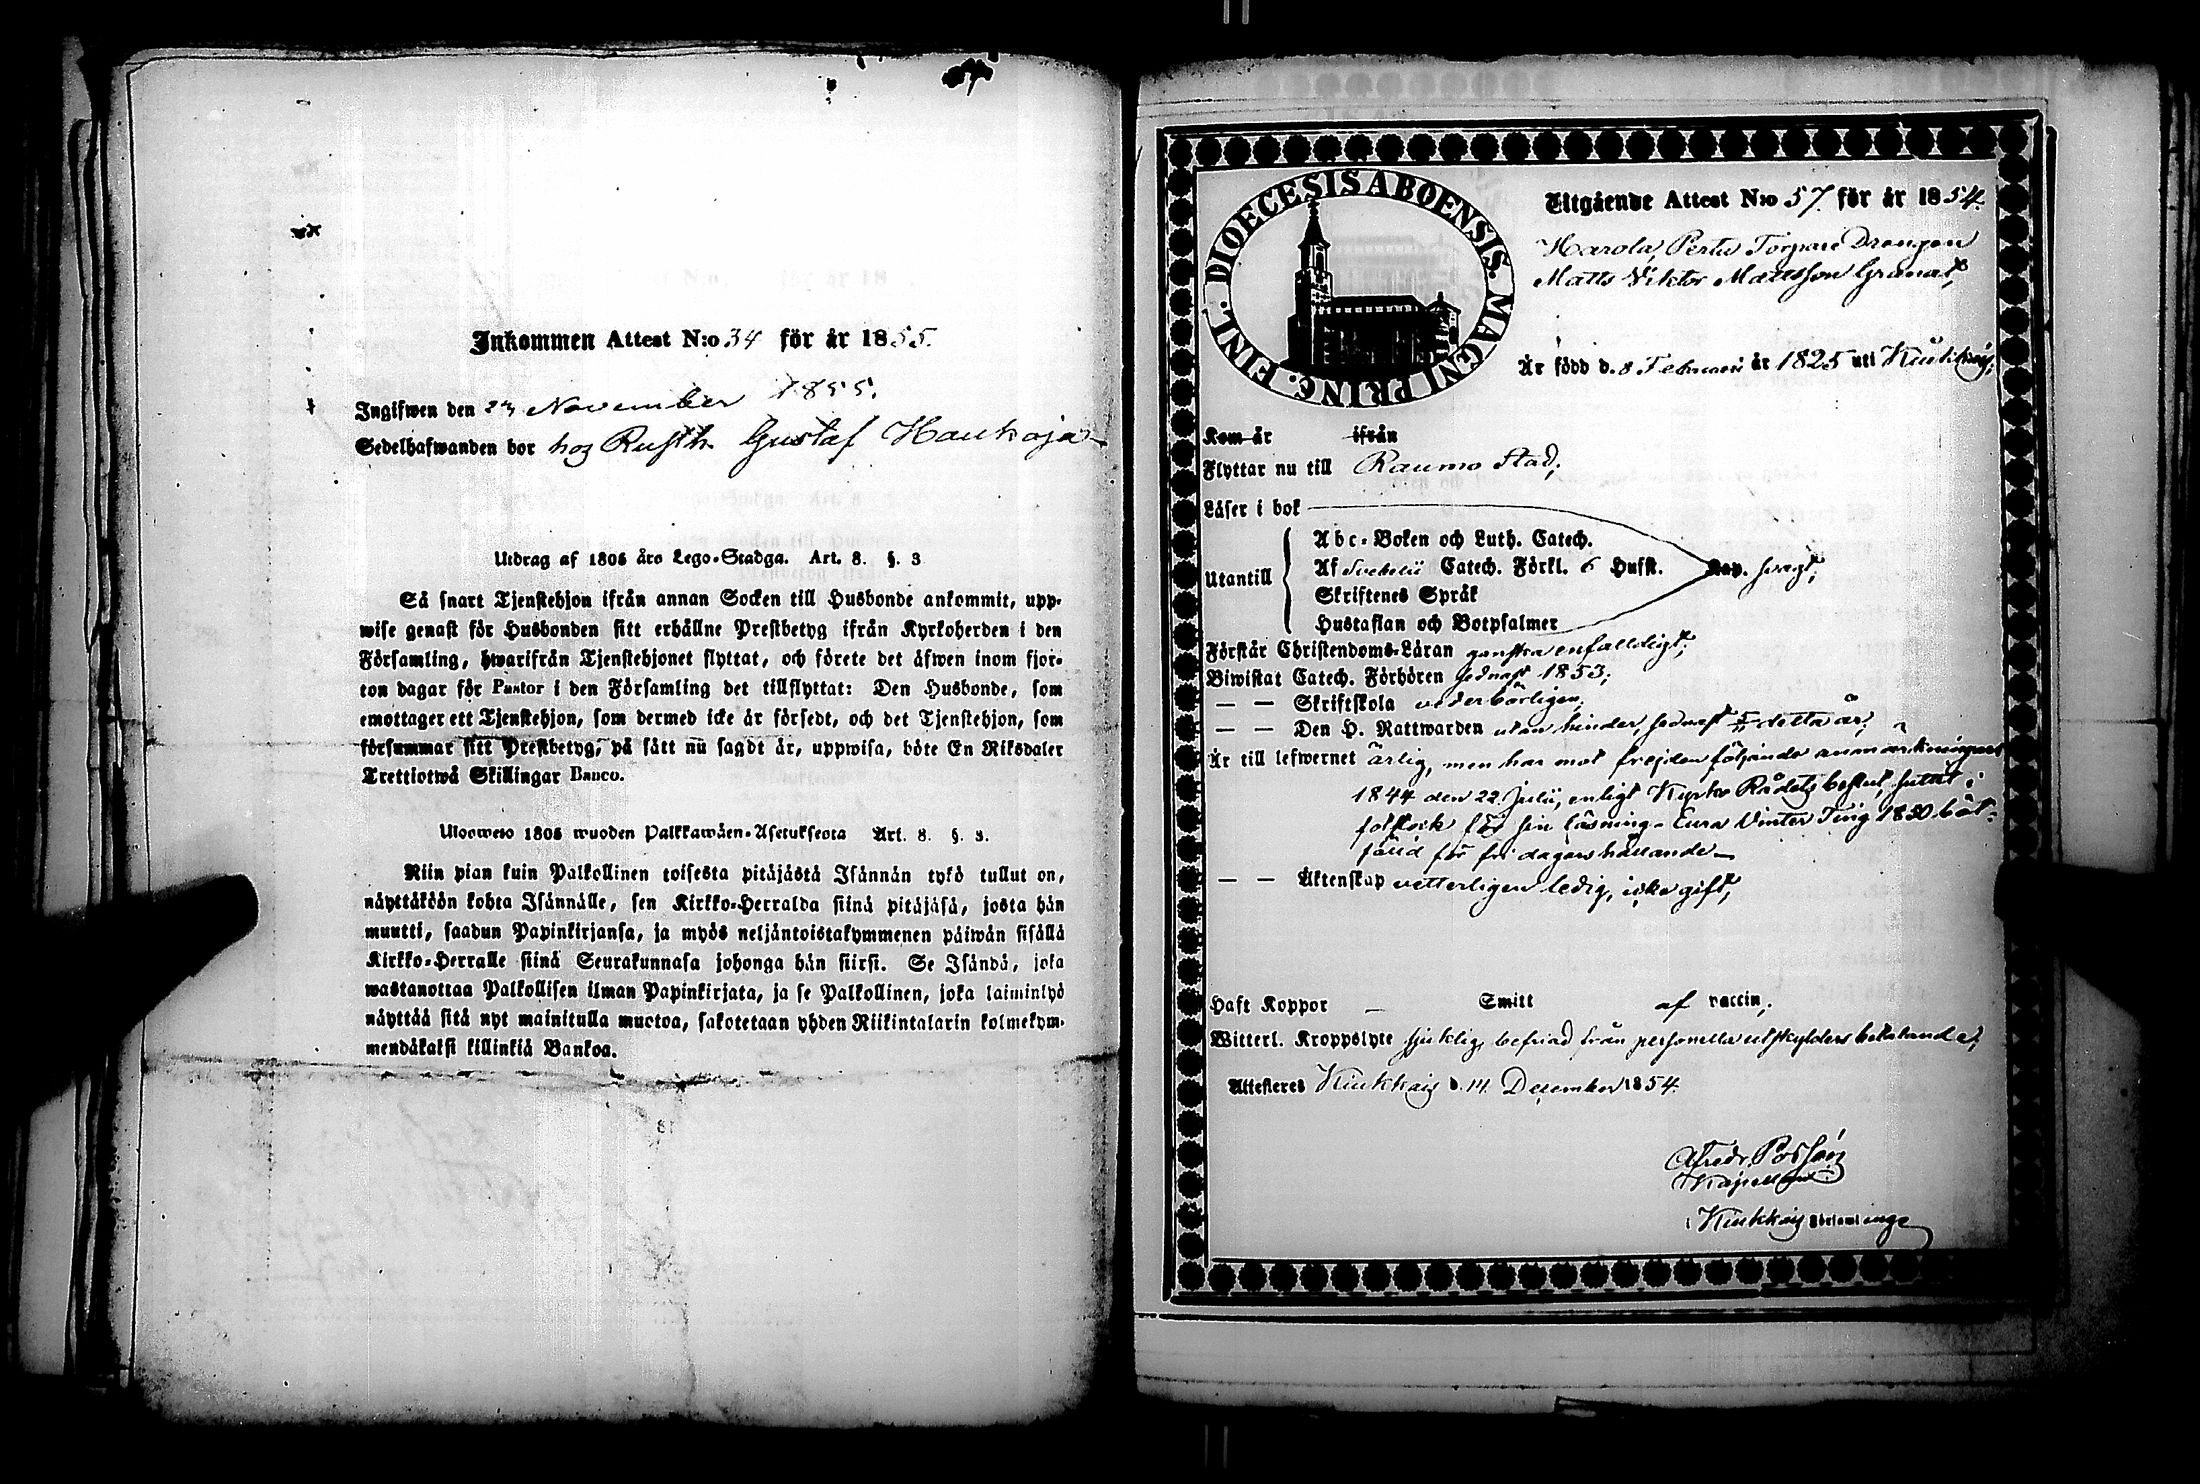 Inkommen Attest N:o 34 för år 1855.
Ingifwen den 23 November 1855.
Sedelhafwanden bor hos Rusth. Gustaf Haukoja
Utdrag af 1805 års Lego-Stadga. Art. 8. §. 3
Så snart Tjenstehjon ifrån annan Socken till Husbonde ankommit, upp-
wise genast för Husbonden sitt erhållne Prestbetyg ifrån Kyrkoherden i den
Församling, hwarifrån Tjenstehjonet flyttat, och förete det äfwen inom fjor-
ton dagar för Pastor i den Församling det tillflyttat: Den Husbonde, som
emottager ett Tjenstehjon, som dermed icke är försedt, och det Tjenstehjon, som
försummar sitt Prestbetyg, på sätt nu sagdt är, uppwisa, böte En Riksdaler
Trettiotwå Skillingar Banco.
Ulosweto 1805 wuoden Palkkawäen-Asetuksesta Art. 8. §. 3.
Niin pian kuin Palkollinen toisesta pitäjästä Isännän tykö tullut on,
näyttäköön kohta Isännälle, sen Kirkko-Herralda siinä pitäjäsä, josta hän
muutti, saadun Papinkirjansa, ja myös neljäntoistakymmenen päiwän sisällä
Kirkko-Herralle siinä Seurakunnasa johonga hän siirsi. Se Isändä, joka
wastanottaa Palkollisen ilman Papinkirjata, ja se Palkollinen, joka laiminlyö
näyttää sitä nyt mainitulla muotoa, sakotetaan yhden Riikintalarin kolmekym-
mendäkaksi killinkiä Bankoa.
DIOECESIS ABOENSIS. MAGNI PRINC. FINL.
Utgående Attest N:o 57. för år 1854.
Harola, Pertu Torpare Drängen
Matts Viktor Mattsson Granat,
Är född d. 8 Februari år 1825 uti Kiukkois,
Kom år ifrån
Flyttar nu till Raumo Stad;
Läser i bok
Utantill
Abc-Boken och Luth. Catech.
Af Svebelii Catech. Förkl. 6 Hufst.
Skriftenes Språk
Hustaflan och Botpsalmer
Kap. svagt;
Förstår Christendoms-Läran ganska enfalldigt;
Biwistat Catech. Förhören sednast 1853;
— — Skriftskola vederbörligen;
— — Den H. Nattwarden utan hinder, sednast detta år;
Är till lefwernet ärlig, men har mot frejden följande anmärkningar
1844 den 22 Julii, enligt Kyrko Rådets beslut, suttit i
fotstock för sin läsning. Eura Vinter Ting 1850 böt-
fälld för fri dagars hållande.
— — Äktenskap vetterligen ledig, icke gift;
Haft Koppor — Smitt af vaccin;
Witterl. Kroppslyte sjuklig, befriad från personella utskylders betalande;
Attesteres Kiukkois d. 14. December 1854.
Alfredr. Possén
Kapellan
i Kiukkois Församlinge